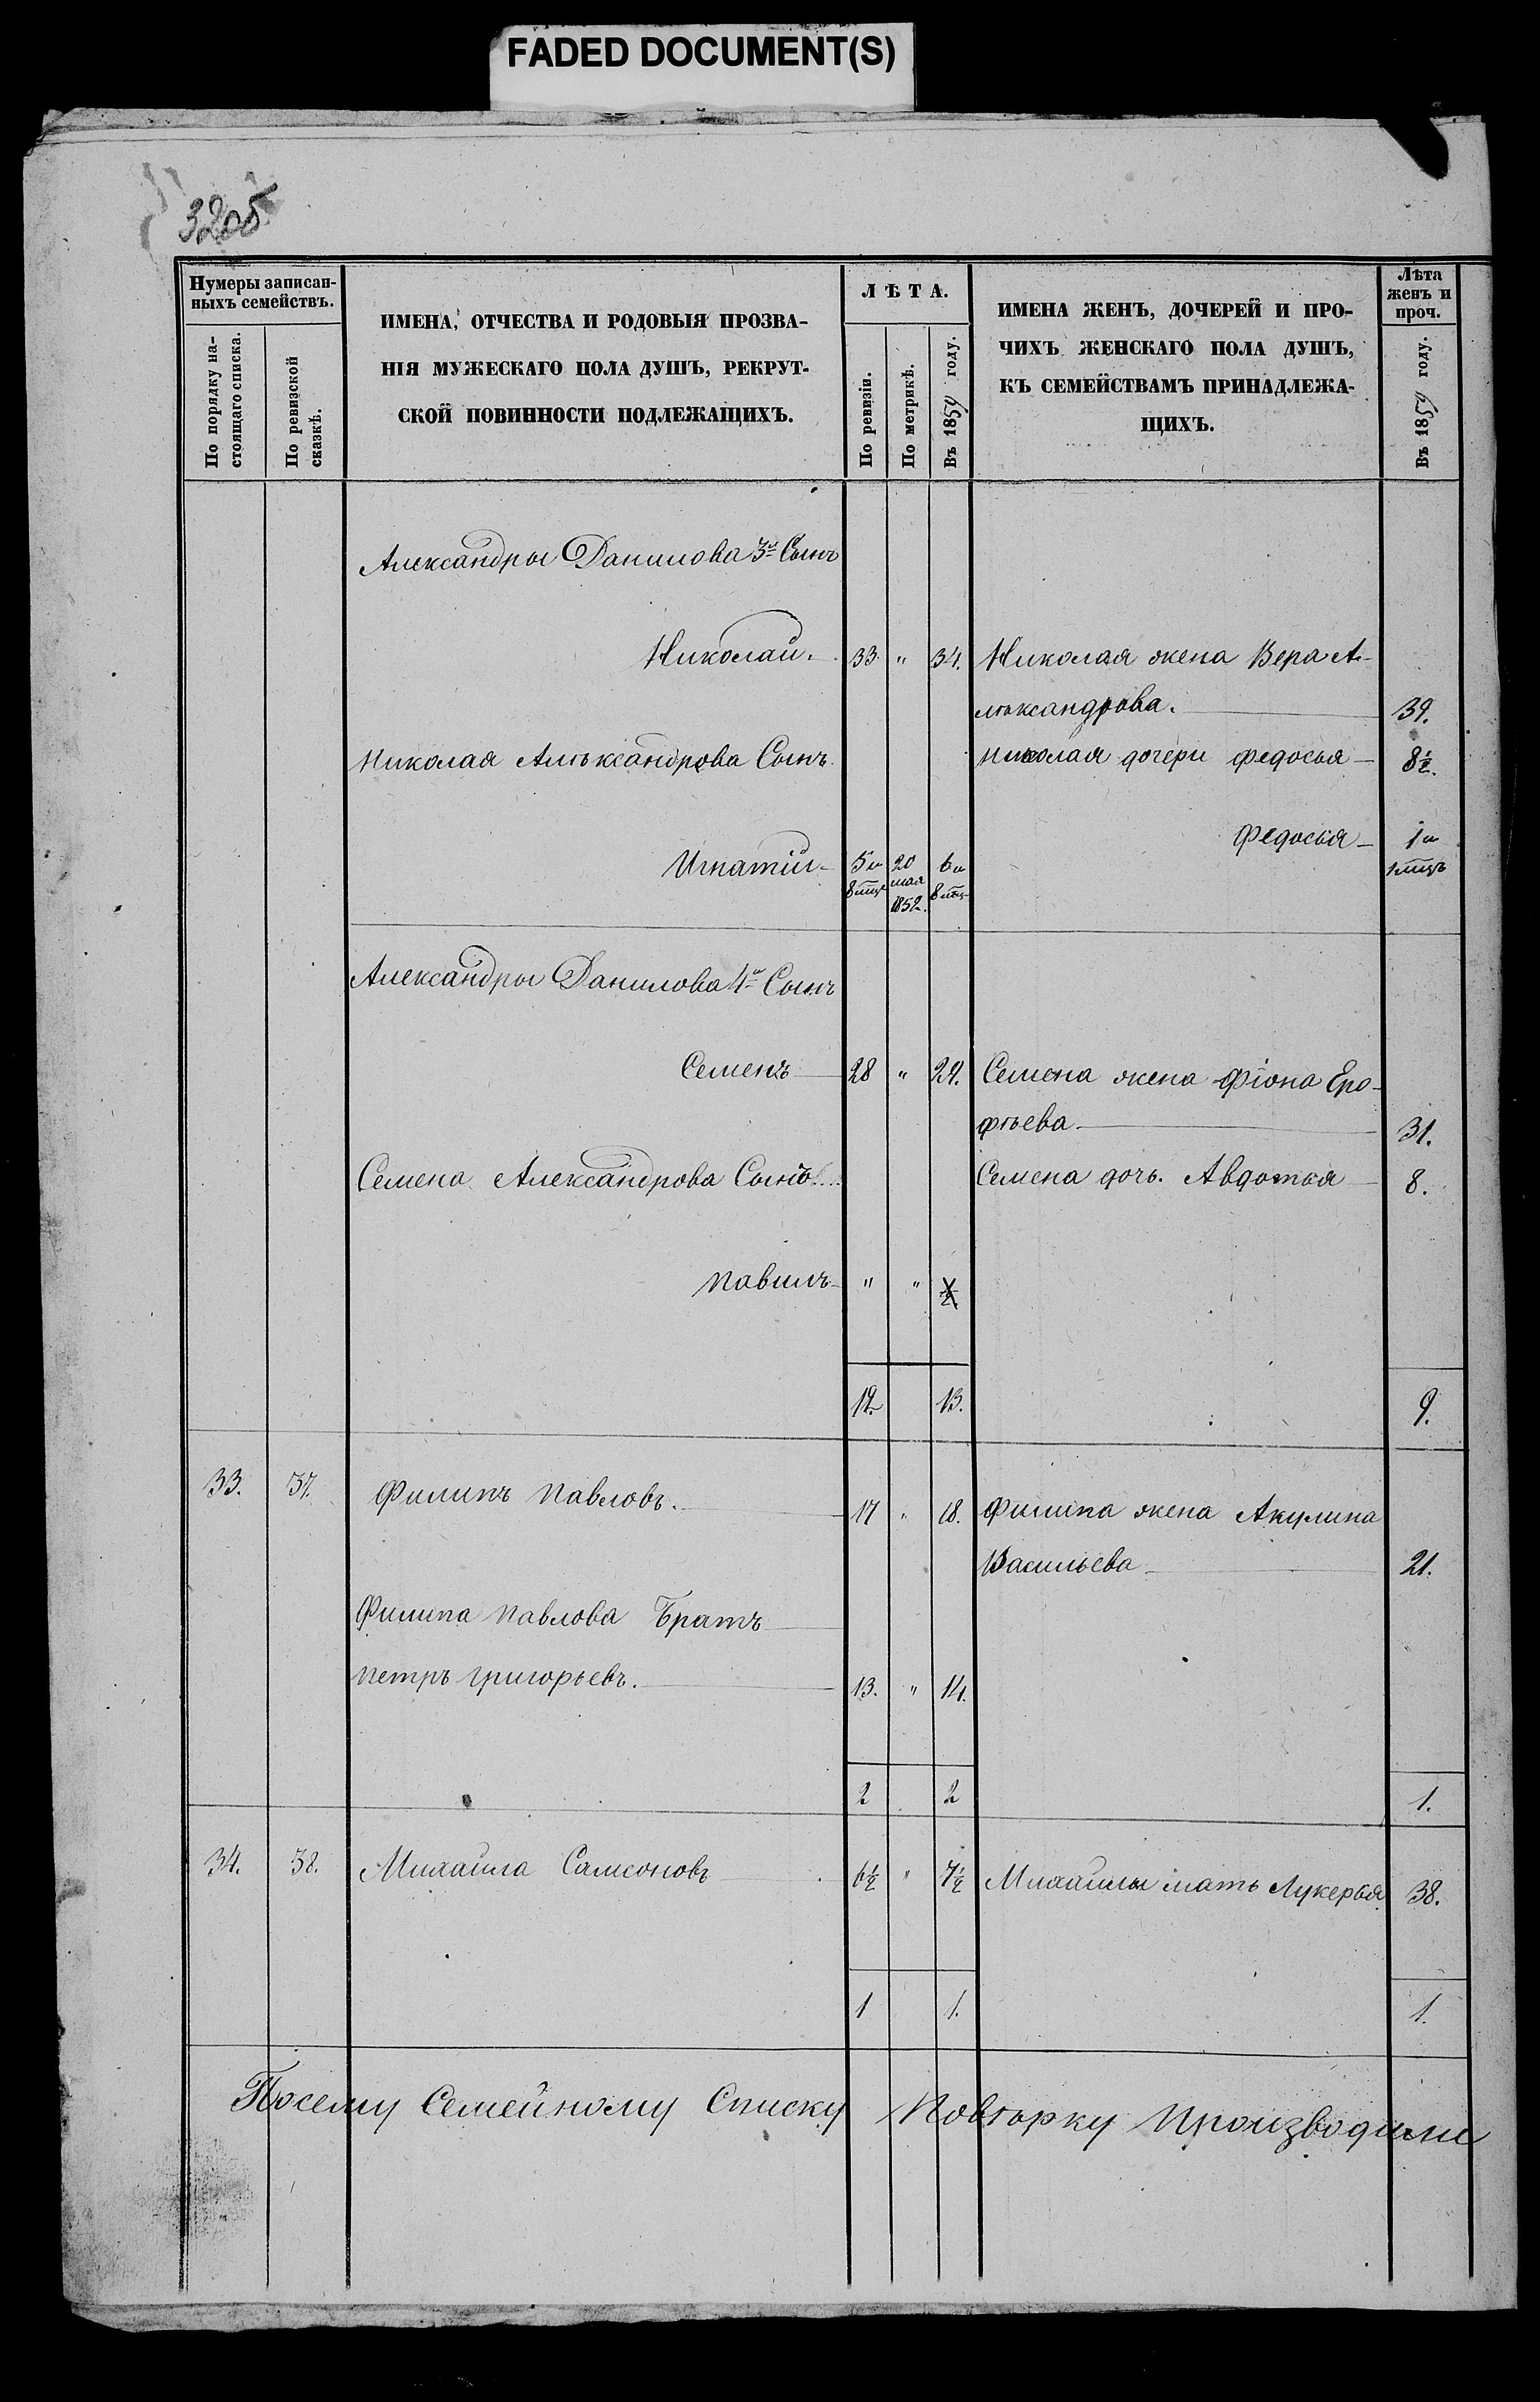 FADED DOCUMENT(S)
3205
Нумеры записан-
ныхъ семействъ.
По порядку на-
стоящаго списка.
По ревизской
сказкѣ.
ИМЕНА, ОТЧЕСТВА И РОДОВЫЯ ПРОЗВА-
НІЯ МУЖЕСКАГО ПОЛА ДУШЪ, РЕКРУТ-
СКОЙ ПОВИННОСТИ ПОДЛЕЖАЩИХЪ.
ЛѢТА.
По ревизіи.
По метрикѣ.
Въ 1859 году.
ИМЕНА ЖЕНЪ, ДОЧЕРЕЙ И ПРО-
ЧИХЪ ЖЕНСКАГО ПОЛА ДУШЪ,
КЪ СЕМЕЙСТВАМЪ ПРИНАДЛЕЖА-
ЩИХЪ.
Лѣта
женъ и
проч.
Въ 1859 году.
Александры Данилова 3й Сынъ
Николай. 33. " 34. Николая жена Вера А-
лѣксандрова. 39.
Николая Алѣксандрова Сынъ. Николая дочери Федосья 8½.
Федосья 1 и
1 мцъ
Игнатій 5 и 20 6 и
8 мцъ мая 8 мцъ
1852.
Александры Данилова 4й Сынъ
Семенъ 28 " 29. Семена жена Фіона Еро-
фѣева 31.
Семена Александрова Сынъ. Семена дочь. Авдотья 8.
Павилъ " "
12. 13. 9.
33. 37. Филипъ Павловъ. 17 " 18. Филипа жена Акулина
Васильева 21.
Филипа Павлова Братъ
Петръ Григорьевъ. 13. " 14.
2 2 1.
34. 38. Михаила Самсоновъ 6½ " 7½ Михаилы мать Лукерья 38.
1 1. 1.
Посему Семейному Списку Повѣрку Производили